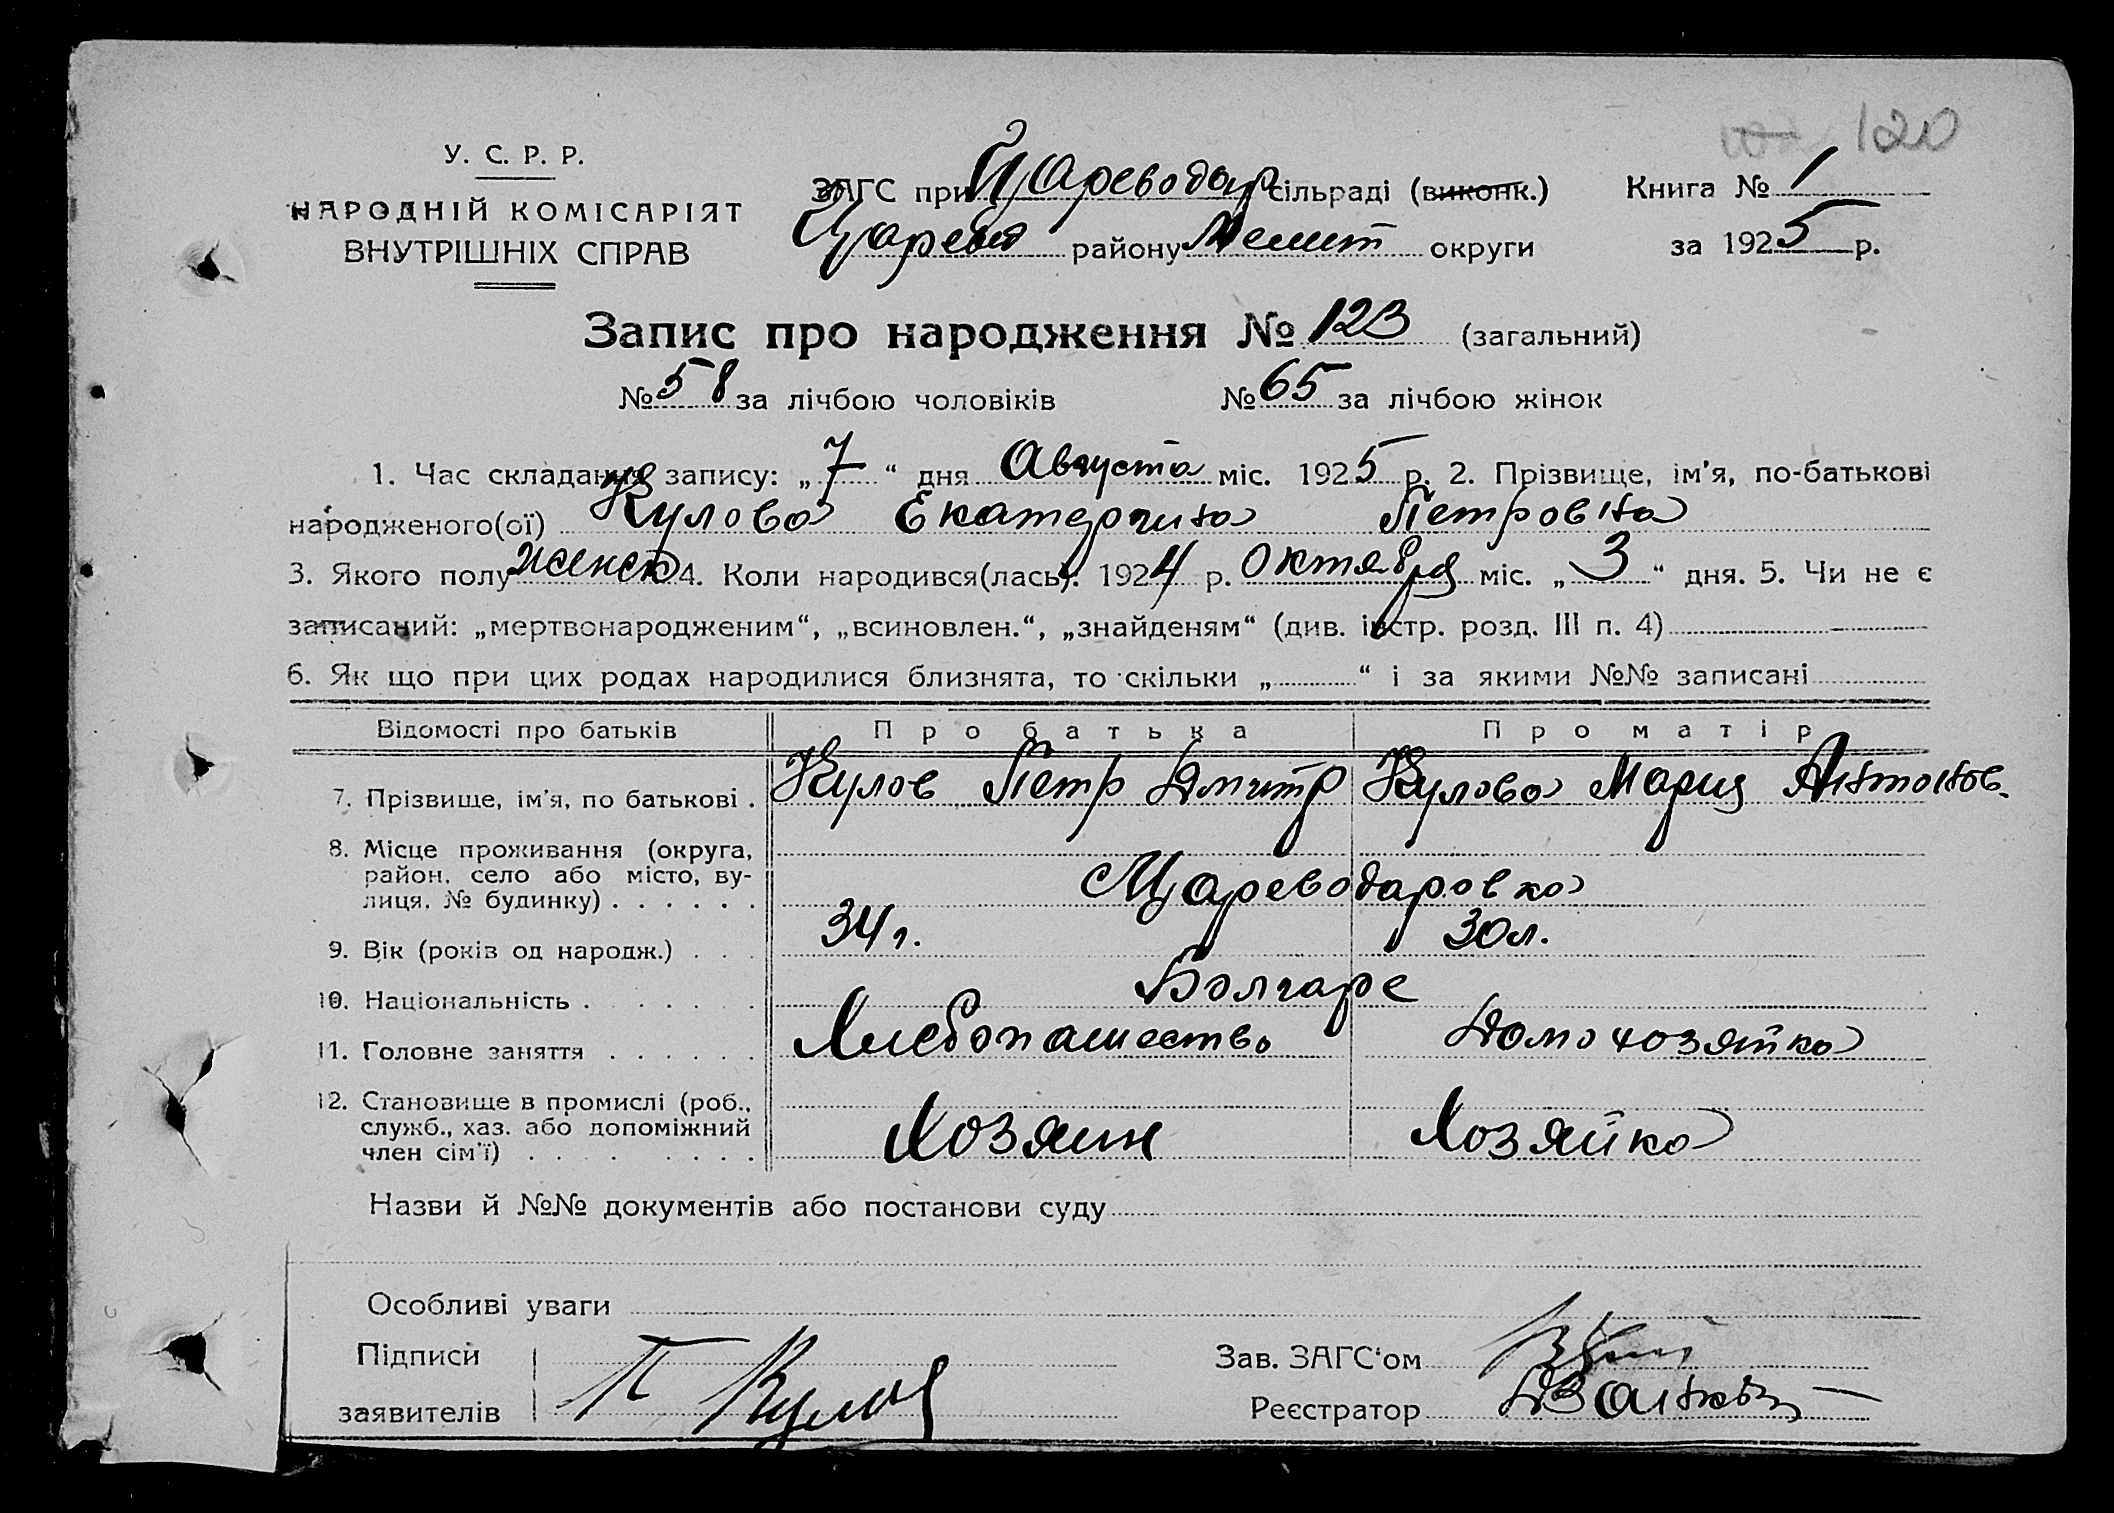 120
У. С. Р. Р.
НАРОДНІЙ КОМІСАРІЯТ
ВНУТРІШНІХ СПРАВ
ЗАГС при Цареводар сільраді (виконк.)
Царевод району Мелит округи
Книга № 1
за 1925 р.
Запис про народження № 123 (загальний)
№ 58 за лічбою чоловіків № 65 за лічбою жінок
1. Час складання запису: „7“ дня Августа міс. 1925 р. 2. Прізвище, ім'я, по-батькові
народженого(ої) Кулова Екатерина Петровна
3. Якого полу женск 4. Коли народився(лась): 1924 р. Октября міс. „3“ дня. 5. Чи не є
записаний: „мертвонародженим“, „всиновлен.“, „знайденям“ (див. інстр. розд. III п. 4)
6. Як що при цих родах народилися близнята, то скільки „ “ і за якими №№ записані
Відомості про батьків Про батька Про матір
7. Прізвище, ім'я, по батькові . Кулов Петр Дмитр Кулова Мария Антонов.
8. Місце проживання (округа,
район, село або місто, ву-
лиця, № будинку) . . . . . . Цареводаровка
9. Вік (років од народж.) . . . 34 г. 30 л.
10. Національність . . . . . . Болгаре
11. Головне заняття . . . . . . Хлебопашество Домохозяйка
12. Становище в промислі (роб.,
служб., хаз. або допоміжний
член сім'ї) . . . . . . . . Хозяин Хозяйка
Назви й №№ документів або постанови суду
Особливі уваги
Підписи
заявителів П Кулов
Зав. ЗАГС'ом
Реєстратор